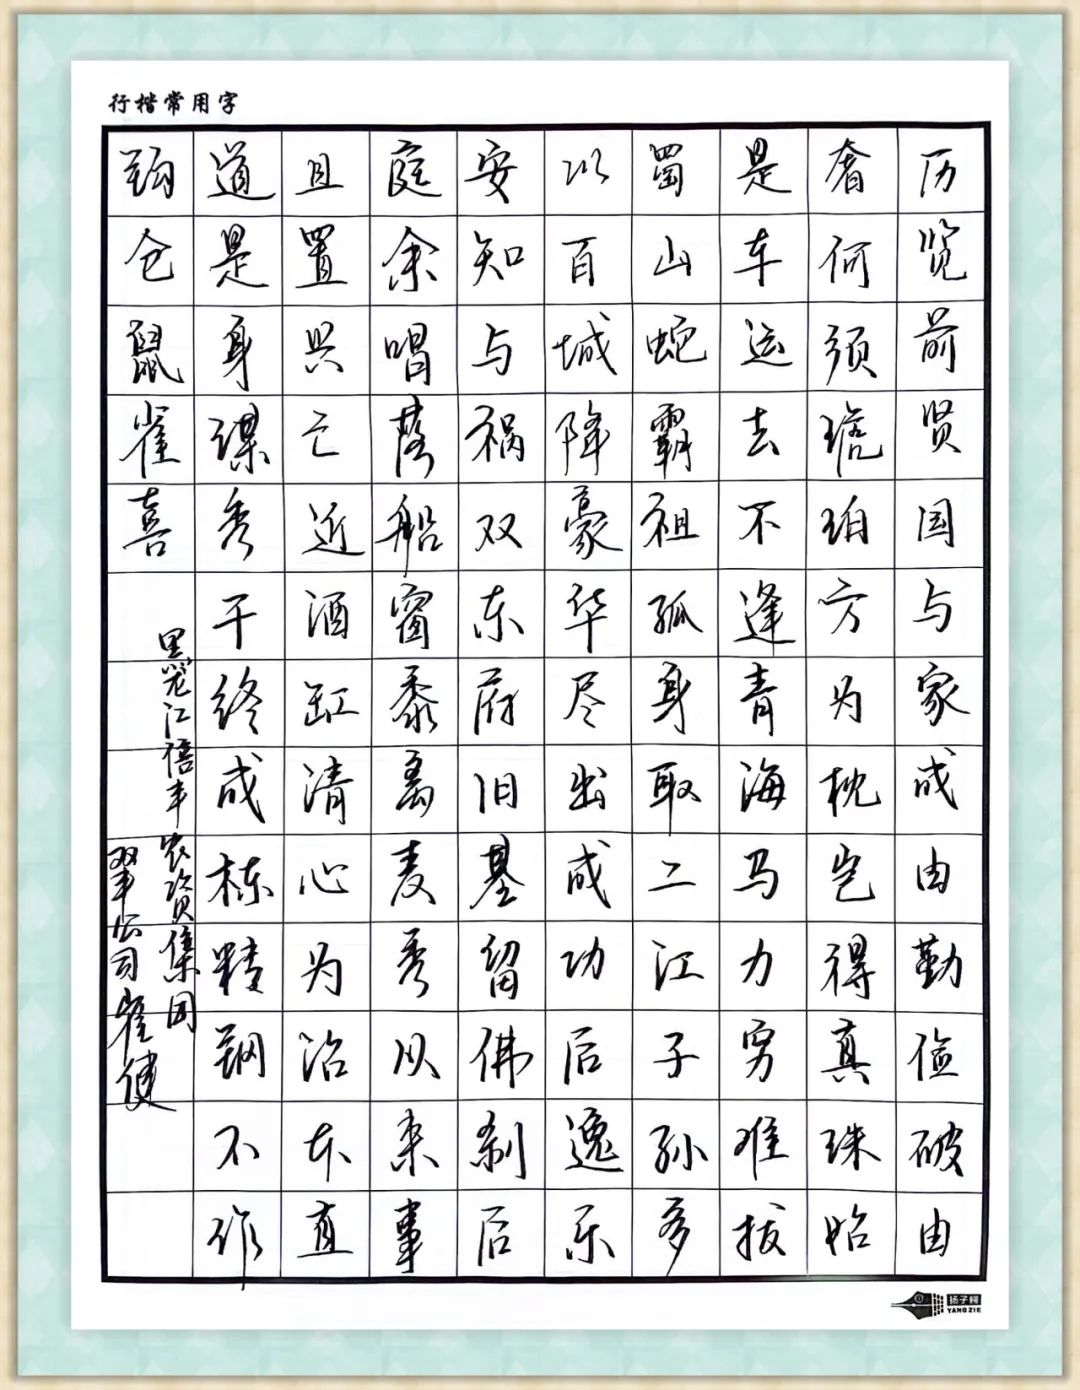 行楷常用字
历览前贤国与家成由勤俭破由
奢何须琥珀方为枕岂得真珠始
是车运去不逢青海马力穷难拔
蜀山蛇霸祖孤身取二江子孙多
以百城降豪华尽出成功后逸乐
安知与祸双东府旧基留佛刹后
庭余唱落船窗黍离麦秀从来事
且置兴亡近酒缸清心为治本直
道是身谋秀干终成栋精钢不作
钩仓鼠雀喜
黑龙江倍丰农资集团
双丰公司崔健
扬子翱
YANGZIE